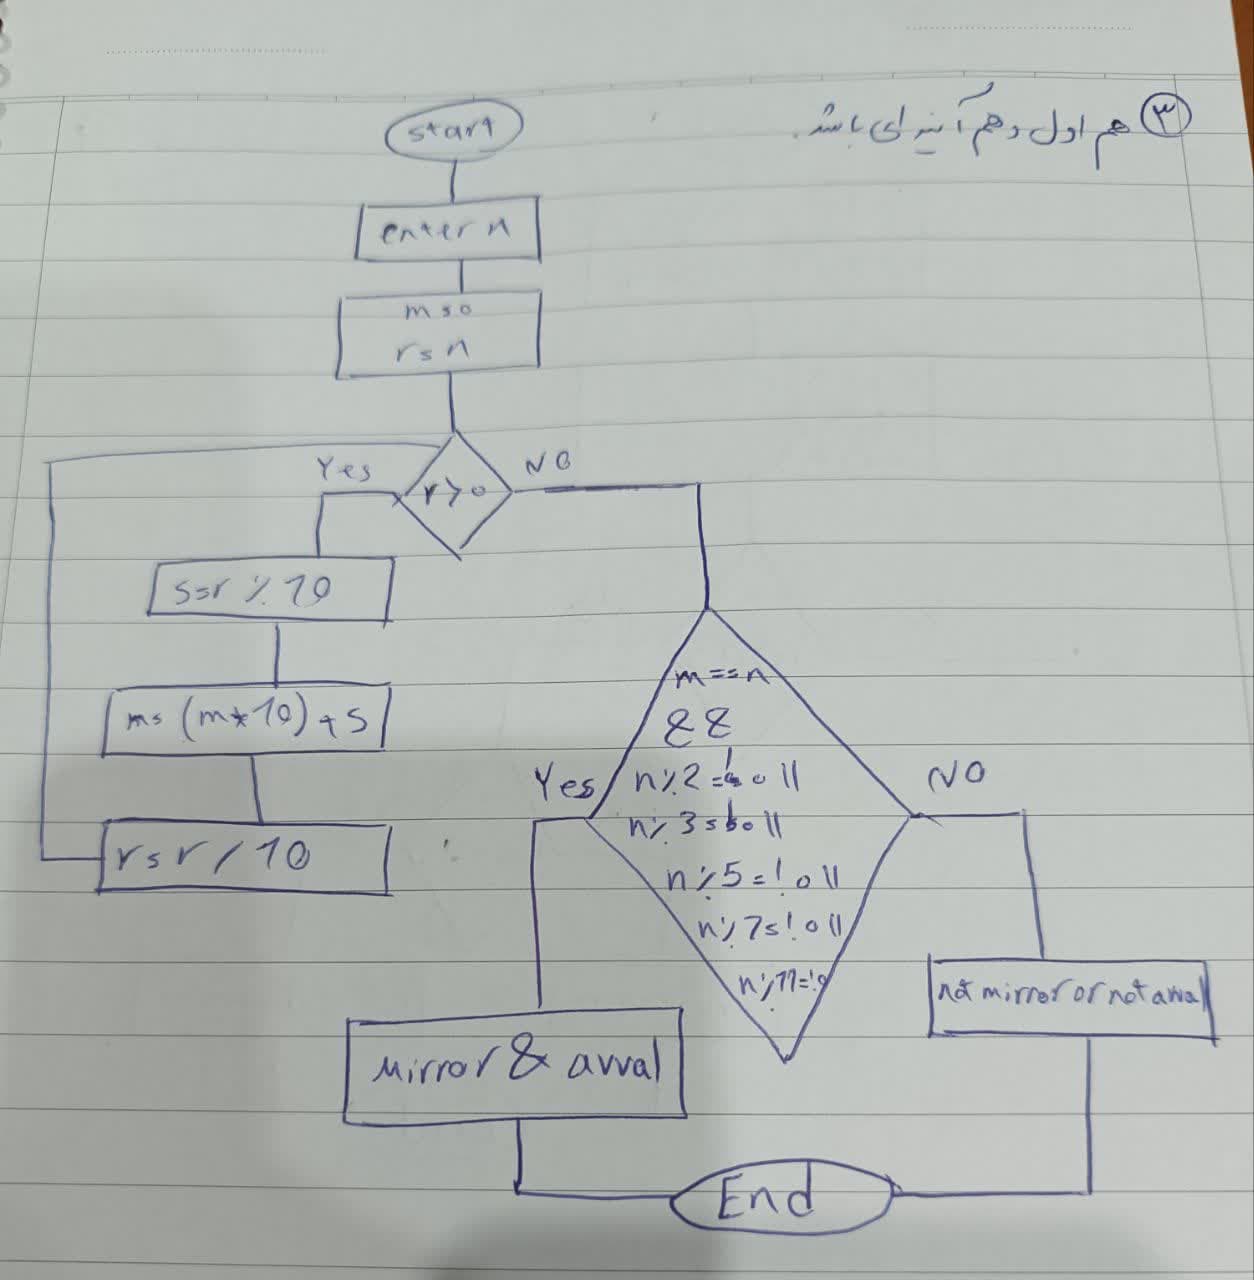 ③ هم اول و هم آینه ای باشد.
start
enter n
m=0
r=n
r>0
Yes
NO
s=r%10
m=(m*10)+s
r=r/10
m==n
&&
n%2=!0||
n%3=!0||
n%5=!0||
n%7=!0||
n%11=!0
Yes
NO
not mirror or not avval
mirror & avval
End